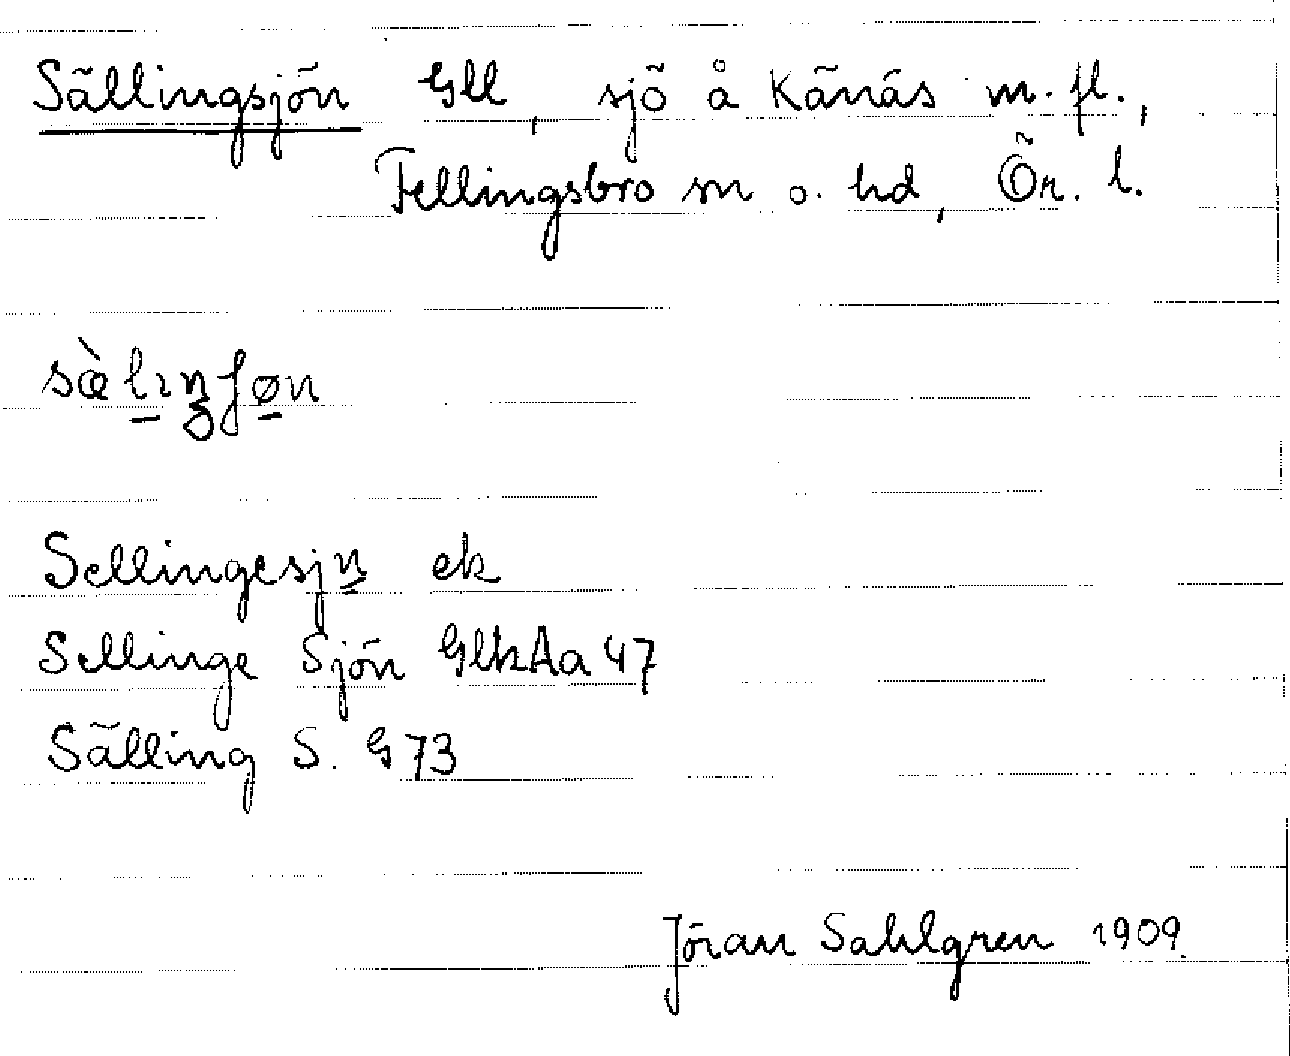 Sällingsjön Gll, sjö å Känäs m. fl.,
Fellingsbro sn o. hd, Ör. l.
sæ̀lıŋʃøn
Sellingesjn ek
Sellinge Sjön GlkAa 47
Sälling S. G 73
Jöran Sahlgren 1909.